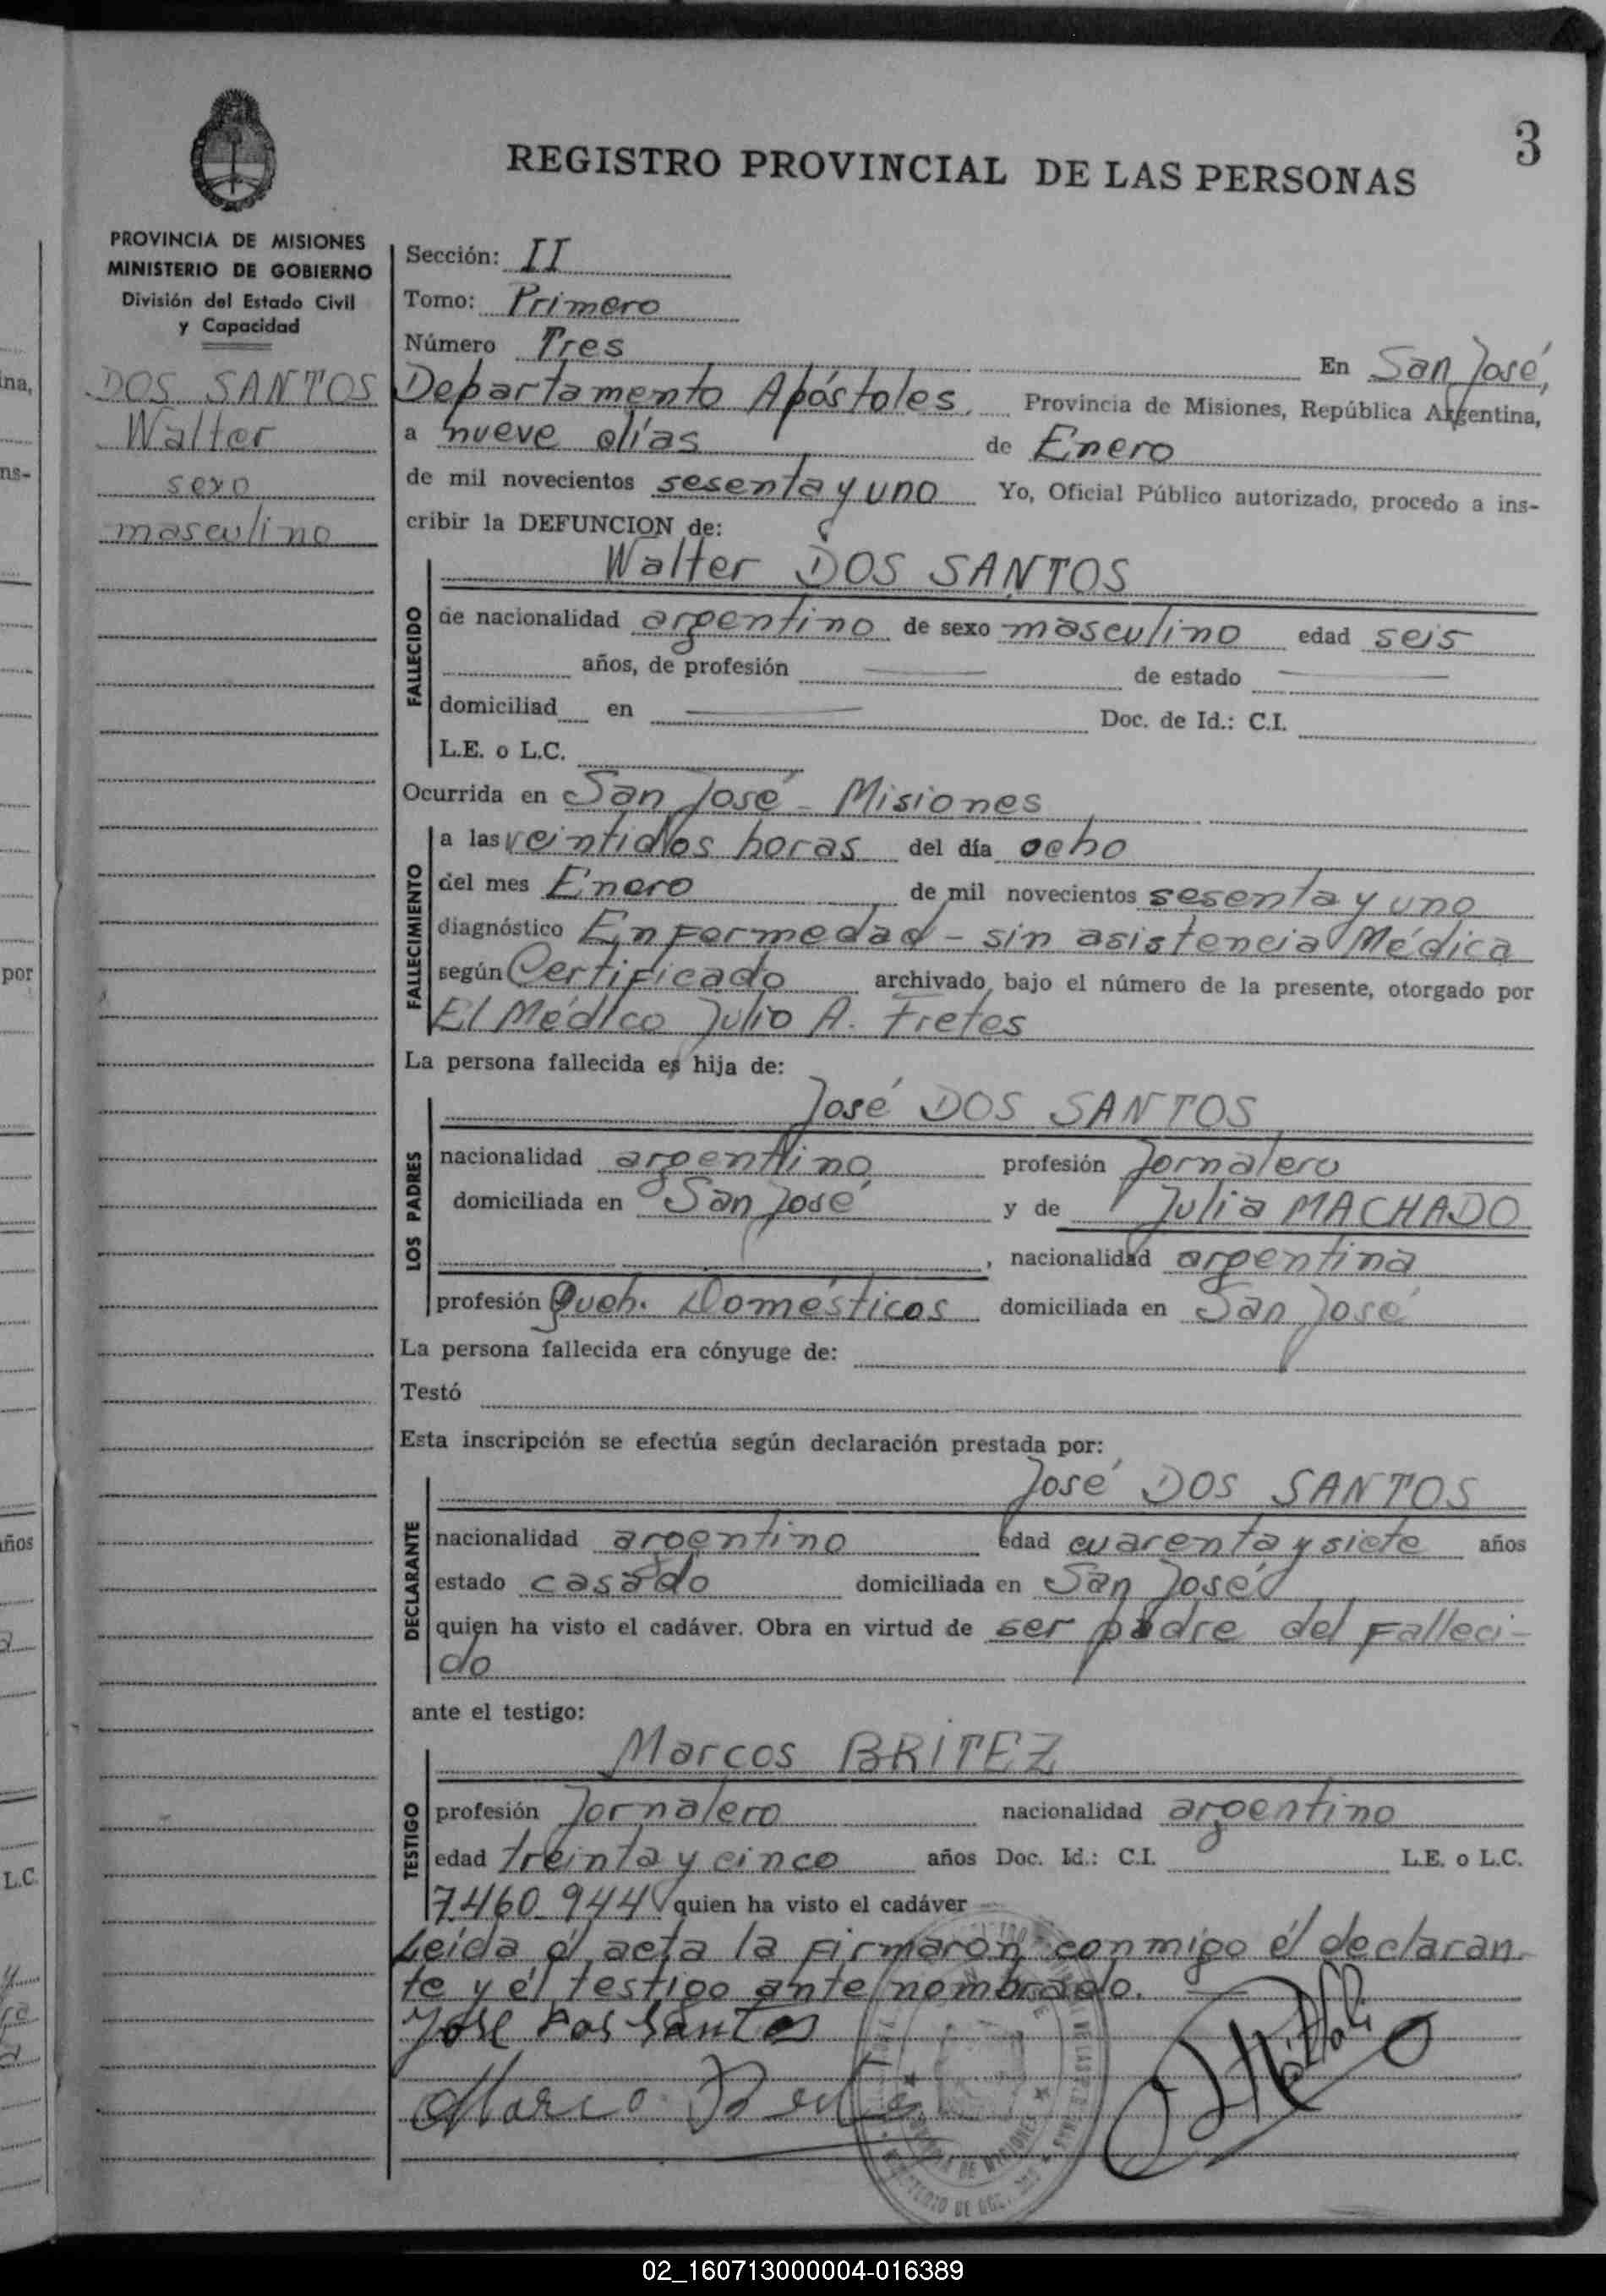 3
REGISTRO PROVINCIAL DE LAS PERSONAS
PROVINCIA DE MISIONES
MINISTERIO DE GOBIERNO
División del Estado Civil
y Capacidad
DOS SANTOS
Walter
sexo
masculino
Sección: II
Tomo: Primero
Número Tres En San José,
Departamento Apóstoles, Provincia de Misiones, República Argentina,
a nueve días de Enero
de mil novecientos sesenta y uno Yo, Oficial Público autorizado, procedo a ins-
cribir la DEFUNCION de:
Walter DOS SANTOS
FALLECIDO
de nacionalidad argentino de sexo masculino edad seis
años, de profesión de estado
domiciliad en Doc. de Id.: C.I.
L.E. o L.C.
Ocurrida en San José - Misiones
FALLECIMIENTO
a las veintidos horas del día ocho
del mes Enero de mil novecientos sesenta y uno
diagnóstico Enfermedad - sin asistencia Médica
según Certificado archivado bajo el número de la presente, otorgado por
El Médico Julio A. Fretes
La persona fallecida es hija de:
José DOS SANTOS
LOS PADRES
nacionalidad argentino profesión Jornalero
domiciliada en San José y de Julia MACHADO
, nacionalidad argentina
profesión Queh. Domésticos domiciliada en San José
La persona fallecida era cónyuge de:
Testó
Esta inscripción se efectúa según declaración prestada por:
José DOS SANTOS
DECLARANTE
nacionalidad argentino edad cuarenta y siete años
estado casado domiciliada en San José
quien ha visto el cadáver. Obra en virtud de ser padre del Falleci-
do
ante el testigo:
Marcos BRITEZ
TESTIGO
profesión Jornalero nacionalidad argentino
edad treinta y cinco años Doc. Id.: C.I. L.E. o L.C.
7.460.944 quien ha visto el cadáver
Leída el acta la firmaron conmigo él declaran
te y él testigo ante nombrado.
Jose Dos Santos
02_160713000004-016389